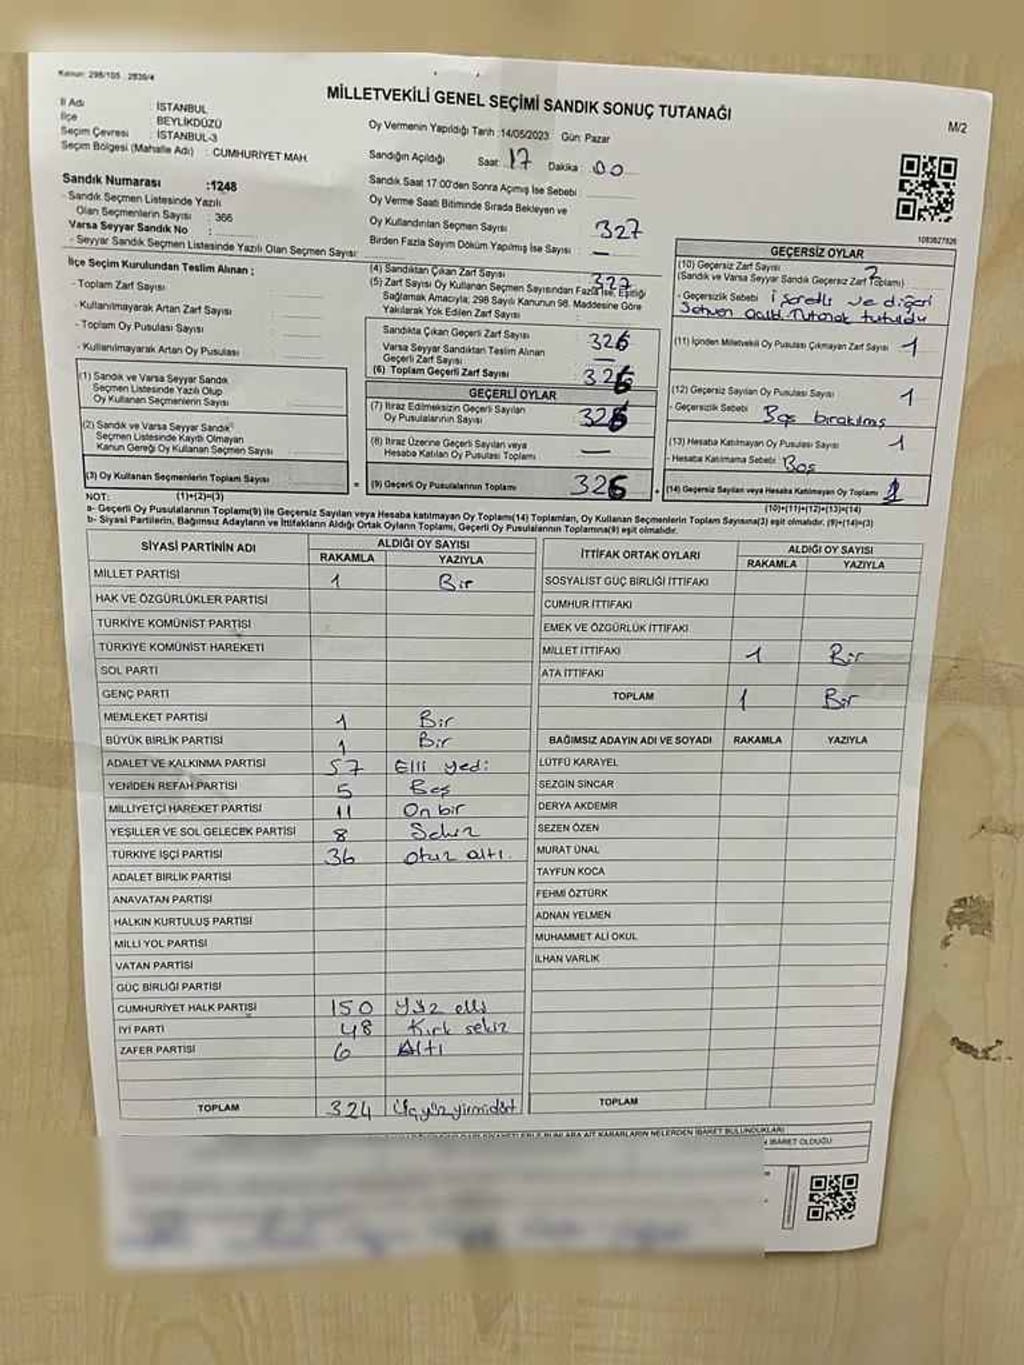 Kanun: 298/105 2839/4
MİLLETVEKİLİ GENEL SEÇİMİ SANDIK SONUÇ TUTANAĞI
M/2
İl Adı : İSTANBUL
İlçe BEYLİKDÜZÜ
Seçim Çevresi : İSTANBUL-3
Seçim Bölgesi (Mahalle Adı) : CUMHURİYET MAH.
Sandık Numarası :1248
- Sandık Seçmen Listesinde Yazılı
Olan Seçmenlerin Sayısı : 366
Varsa Seyyar Sandık No :
- Seyyar Sandık Seçmen Listesinde Yazılı Olan Seçmen Sayısı:
Oy Vermenin Yapıldığı Tarih :14/05/2023 Gün: Pazar
Sandığın Açıldığı Saat: 17 Dakika: 00
Sandık Saat 17:00'den Sonra Açılmış İse Sebebi :
Oy Verme Saati Bitiminde Sırada Bekleyen ve
Oy Kullandırılan Seçmen Sayısı : 327
Birden Fazla Sayım Döküm Yapılmış İse Sayısı : —
1083827826
İlçe Seçim Kurulundan Teslim Alınan ;
- Toplam Zarf Sayısı :
- Kullanılmayarak Artan Zarf Sayısı :
- Toplam Oy Pusulası Sayısı :
- Kullanılmayarak Artan Oy Pusulası :
(1) Sandık ve Varsa Seyyar Sandık
Seçmen Listesinde Yazılı Olup
Oy Kullanan Seçmenlerin Sayısı :
(2) Sandık ve Varsa Seyyar Sandık
Seçmen Listesinde Kaydı Olmayan
Kanun Gereği Oy Kullanan Seçmen Sayısı :
(3) Oy Kullanan Seçmenlerin Toplam Sayısı :
(1)+(2)=(3)
(4) Sandıktan Çıkan Zarf Sayısı : 327
(5) Zarf Sayısı Oy Kullanan Seçmen Sayısından Fazla İse, Eşitliği
Sağlamak Amacıyla; 298 Sayılı Kanunun 98. Maddesine Göre
Yakılarak Yok Edilen Zarf Sayısı :
Sandıkta Çıkan Geçerli Zarf Sayısı : 326
Varsa Seyyar Sandıktan Teslim Alınan
Geçerli Zarf Sayısı : —
(6) Toplam Geçerli Zarf Sayısı : 326
GEÇERLİ OYLAR
(7) İtiraz Edilmeksizin Geçerli Sayılan
Oy Pusulalarının Sayısı : 326
(8) İtiraz Üzerine Geçerli Sayılan veya
Hesaba Katılan Oy Pusulası Toplamı : —
= (9) Geçerli Oy Pusulalarının Toplamı : 326 +
GEÇERSİZ OYLAR
(10) Geçersiz Zarf Sayısı
(Sandık ve Varsa Seyyar Sandık Geçersiz Zarf Toplamı)
- Geçersizlik Sebebi : işaretli ve diğeri
Tutanak tutuldu
(11) İçinden Milletvekili Oy Pusulası Çıkmayan Zarf Sayısı : 1
(12) Geçersiz Sayılan Oy Pusulası Sayısı : 1
- Geçersizlik Sebebi : Boş bırakılmış
(13) Hesaba Katılmayan Oy Pusulası Sayısı : 1
- Hesaba Katılmama Sebebi : Boş
(14) Geçersiz Sayılan veya Hesaba Katılmayan Oy Toplamı :
(10)+(11)+(12)+(13)=(14)
NOT:
a- Geçerli Oy Pusulalarının Toplamı(9) ile Geçersiz Sayılan veya Hesaba katılmayan Oy Toplamı(14) Toplamları, Oy Kullanan Seçmenlerin Toplam Sayısına(3) eşit olmalıdır. (9)+(14)=(3)
b- Siyasi Partilerin, Bağımsız Adayların ve İttifakların Aldığı Ortak Oyların Toplamı, Geçerli Oy Pusulalarının Toplamına(9) eşit olmalıdır.
SİYASİ PARTİNİN ADI ALDIĞI OY SAYISI
RAKAMLA YAZIYLA
MİLLET PARTİSİ 1 Bir
HAK VE ÖZGÜRLÜKLER PARTİSİ
TÜRKİYE KOMÜNİST PARTİSİ
TÜRKİYE KOMÜNİST HAREKETİ
SOL PARTİ
GENÇ PARTİ
MEMLEKET PARTİSİ 1 Bir
BÜYÜK BİRLİK PARTİSİ 1 Bir
ADALET VE KALKINMA PARTİSİ 57 Elli yedi
YENİDEN REFAH PARTİSİ 5 Beş
MİLLİYETÇİ HAREKET PARTİSİ 11 On bir
YEŞİLLER VE SOL GELECEK PARTİSİ 8 Sekiz
TÜRKİYE İŞÇİ PARTİSİ 36 otuz altı.
ADALET BİRLİK PARTİSİ
ANAVATAN PARTİSİ
HALKIN KURTULUŞ PARTİSİ
MİLLİ YOL PARTİSİ
VATAN PARTİSİ
GÜÇ BİRLİĞİ PARTİSİ
CUMHURİYET HALK PARTİSİ 150 Yüz elli
İYİ PARTİ 48 Kırk sekiz
ZAFER PARTİSİ 6 Altı
TOPLAM 324 Üçyüzyirmidört
İTTİFAK ORTAK OYLARI ALDIĞI OY SAYISI
RAKAMLA YAZIYLA
SOSYALİST GÜÇ BİRLİĞİ İTTİFAKI
CUMHUR İTTİFAKI
EMEK VE ÖZGÜRLÜK İTTİFAKI
MİLLET İTTİFAKI 1 Bir
ATA İTTİFAKI
TOPLAM 1 Bir
BAĞIMSIZ ADAYIN ADI VE SOYADI RAKAMLA YAZIYLA
LÜTFÜ KARAYEL
SEZGİN SİNCAR
DERYA AKDEMİR
SEZEN ÖZEN
MURAT ÜNAL
TAYFUN KOCA
FEHMİ ÖZTÜRK
ADNAN YELMEN
MUHAMMET ALİ OKUL
İLHAN VARLIK
TOPLAM
KARARLARIN NELERDEN İBARET BULUNDUKLARI
İBARET OLDUĞU